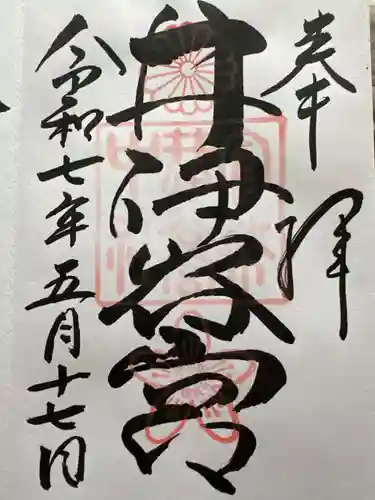 奉拝
井伊谷宮
令和七年五月十七日